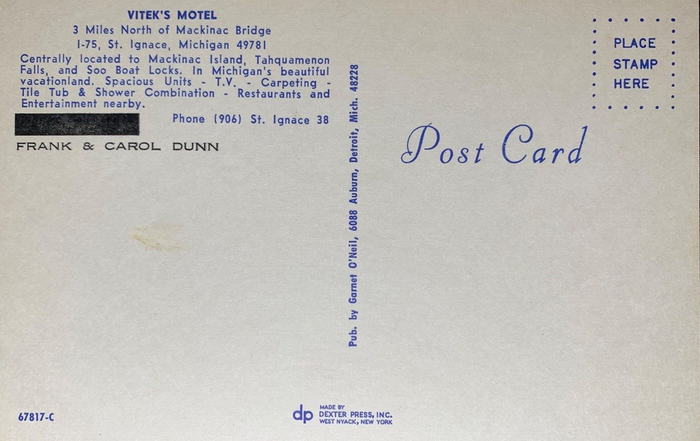 VITEK'S MOTEL
3 Miles North of Mackinac Bridge
I-75, St. Ignace, Michigan 49781
Centrally located to Mackinac Island, Tahquamenon
Falls, and Soo Boat Locks. In Michigan's beautiful
vacationland. Spacious Units - T.V. - Carpeting -
Tile Tub & Shower Combination - Restaurants and
Entertainment nearby.
Phone (906) St. Ignace 38
FRANK & CAROL DUNN
67817-C
Pub. by Garnet O'Neil, 6088 Auburn, Detroit, Mich. 48228
dp
MADE BY
DEXTER PRESS, INC.
WEST NYACK, NEW YORK
Post Card
PLACE
STAMP
HERE